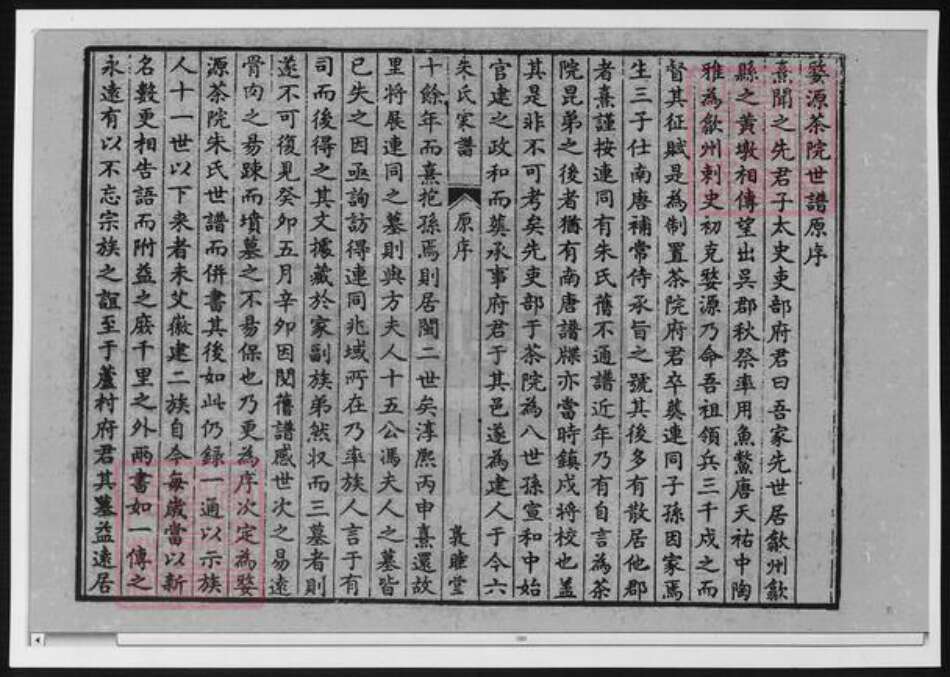 婺源茶院世譜原序
熹聞之先君子太史吏部府君曰吾家先世居歙州歙
縣之黃墩相傳望出吳郡秋祭率用魚鱉唐天祐中陶
雅為歙州刺史初克婺源乃命吾祖領兵三千戍之而
督其征賦是為制置茶院府君卒葬連同子孫因家焉
生三子仕南唐補常侍承旨之號其後多有散居他郡
者熹謹按連同有朱氏舊不通譜近年乃有自言為茶
院昆弟之後者猶有南唐譜牒亦當時鎮戍將校也蓋
其是非不可考矣先吏部于茶院為八世孫宣和中始
官建之政和而葬承事府君于其邑遂為建人于今六
朱氏家譜 原序 敦睦堂
十餘年而熹抱孫焉則居閩二世矣淳熙丙申熹還故
里將展連同之墓則與方夫人十五公馮夫人之墓皆
已失之因亟詢訪得連同兆域所在乃率族人言于有
司而後得之其文據藏於家副族弟然収而三墓者則
遂不可復見癸卯五月辛卯因閱舊譜感世次之易遠
骨肉之易踈而墳墓之不易保也乃更為序次定為婺
源茶院朱氏世譜而併書其後如此仍錄一通以示族
人十一世以下来者未艾徽建二族自今每歲當以新
名數更相告語而附益之庶千里之外兩書如一傳之
永遠有以不忘宗族之誼至于蘆村府君其墓益遠居